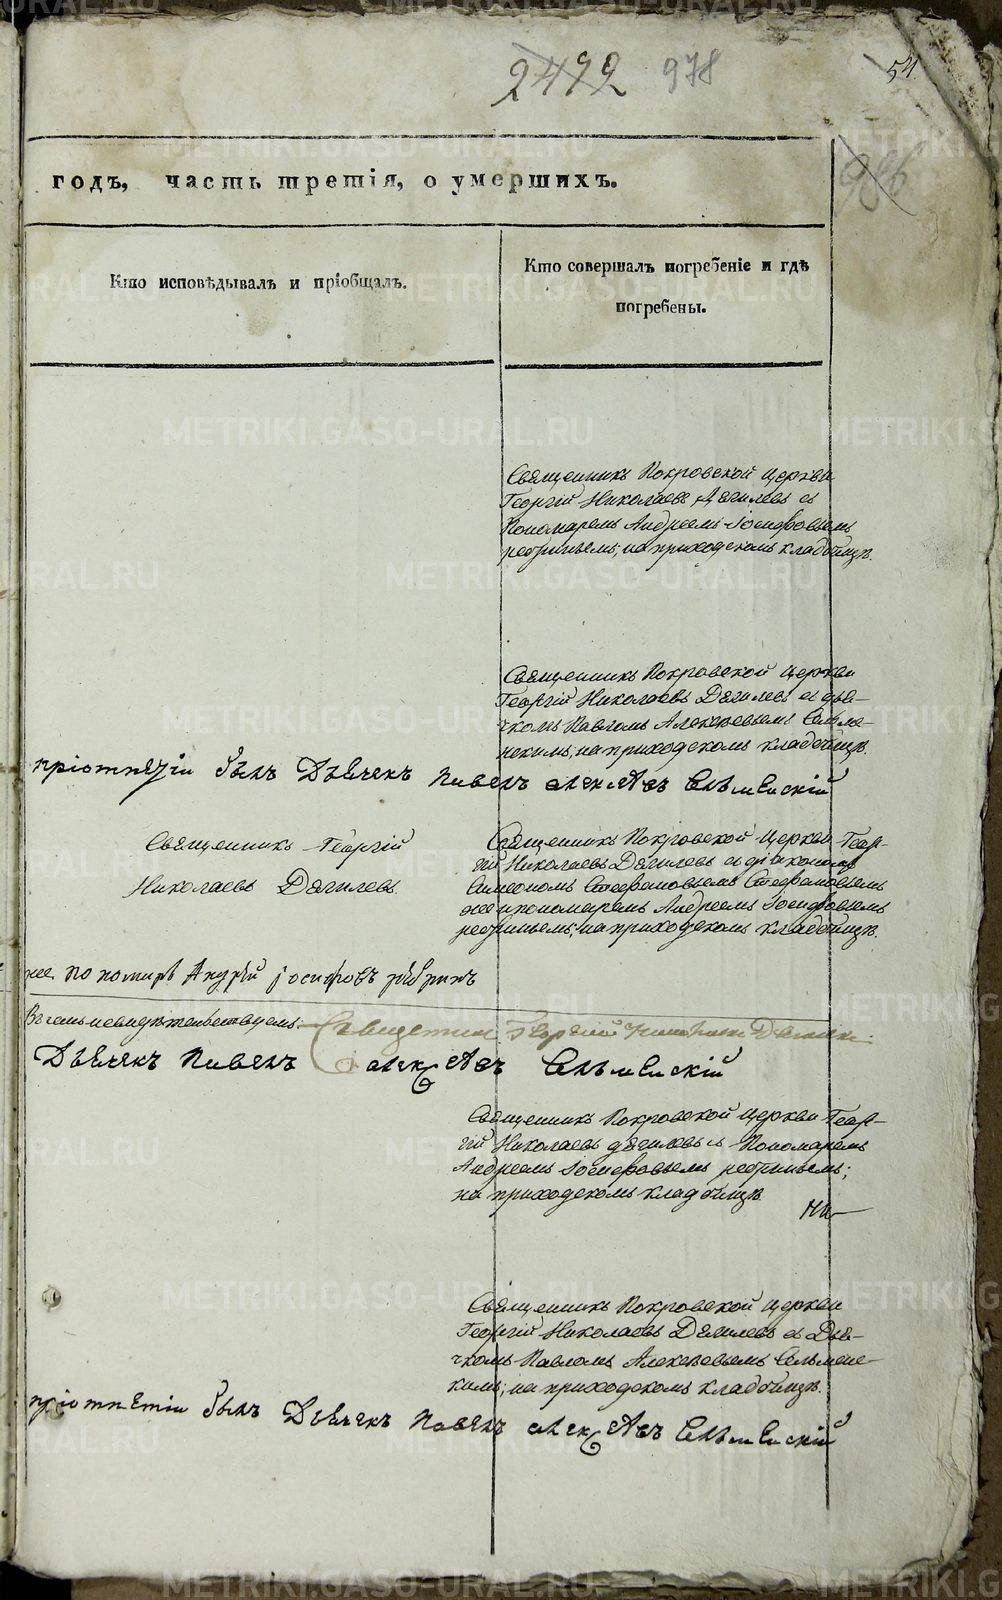 2422 978
54
986
годъ, часть третія, о умершихъ.
Кто исповѣдывалъ и пріобщалъ.
Кто совершалъ погребеніе и гдѣ
погребены.
Священникъ Покровской церкви
Георгій Николаевъ Дягилевъ съ
Пономаремъ Андреемъ Іосифовымъ
на приходскомъ кладбищѣ.
Священникъ Покровской церкви
Георгій Николаевъ Дягилевъ съ дья-
чкомъ Павломъ Алексѣевымъ Сельме-
нскимъ, на приходскомъ кладбищѣ.
былъ Дьячекъ Павелъ Алексѣевъ Сельменскій
Священникъ Георгій
Николаевъ Дягилевъ
Священникъ Покровской церкви Геор-
гій Николаевъ Дягилевъ съ діакономъ
Симеономъ Стефановымъ Стефановымъ
же и пономаремъ Андреемъ Іосифовымъ
на приходскомъ кладбищѣ.
же пономарь Андрей Іосифовъ
Въ семъ свидѣтельствуемъ: Священникъ Георгій Николаевъ Дягилевъ
Дьячекъ Павелъ Алексѣевъ Сельменскій
Священникъ Покровской церкви Геор-
гій Николаевъ Дягилевъ съ Пономаремъ
Андреемъ Іосифовымъ
на приходскомъ кладбищѣ
Священникъ Покровской церкви
Георгій Николаевъ Дягилевъ съ Дья-
чкомъ Павломъ Алексѣевымъ Сельменс-
кимъ, на приходскомъ кладбищѣ.
былъ Дьячекъ Павелъ Алексѣевъ Сельменскій
METRIKI.GASO-URAL.RU